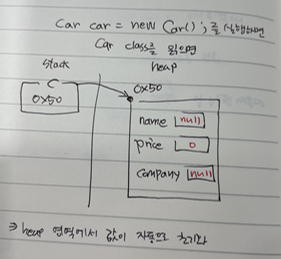 Car car = new Car(); 를 실행하면
Car class를 읽으면
stack
heap
C
0x50
0x50
name null
price 0
company null
⇒ heap 영역에서 값이 자동으로 초기화